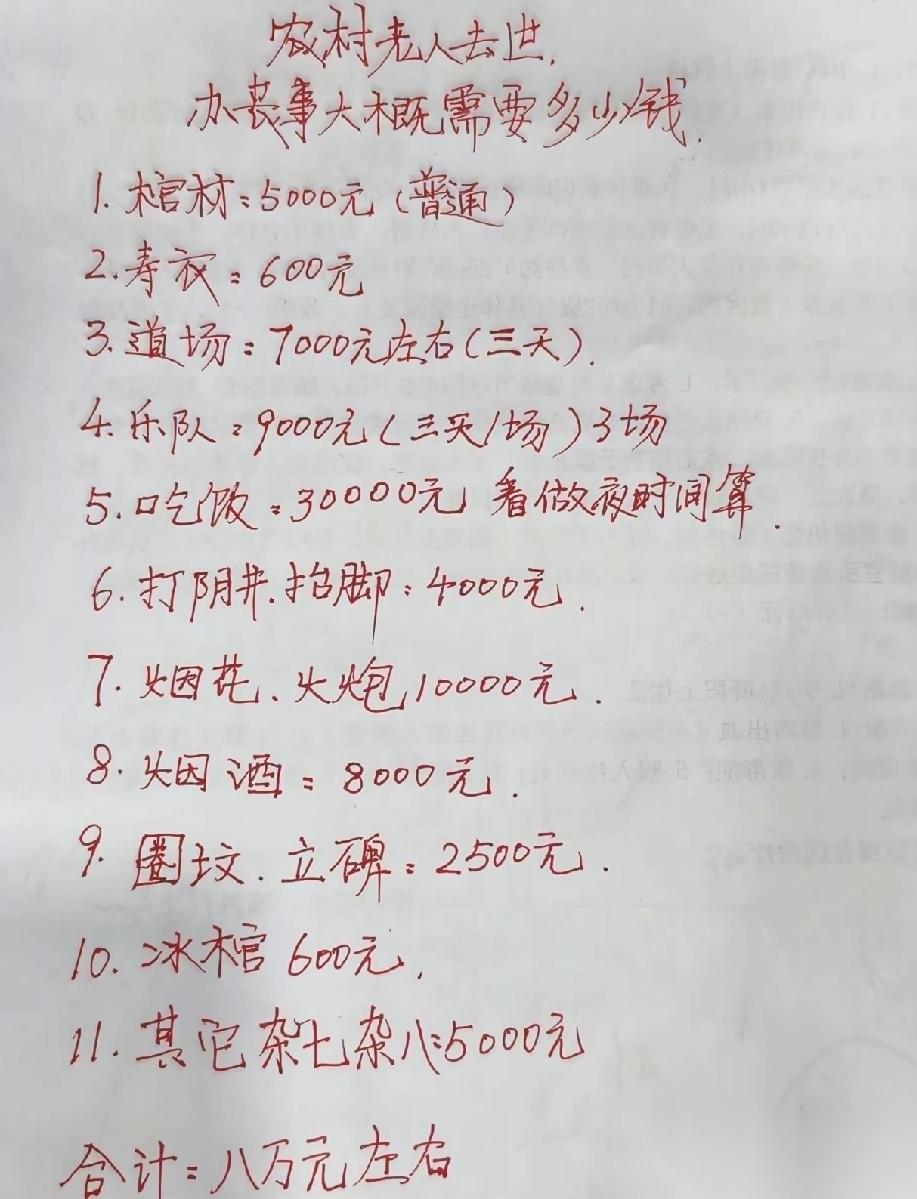 农村老人去世,
办丧事大概需要多少钱.
1. 棺材:5000元(普通)
2. 寿衣:600元
3. 道场:7000元左右(三天).
4. 乐队:9000元(三天/场)3场
5. 吃饭:30000元 看做夜时间算.
6. 打阴井.抬脚:4000元.
7. 烟花、火炮10000元.
8. 烟酒:8000元.
9. 圈坟.立碑:2500元.
10. 冰棺 600元,
11. 其它杂七杂八:5000元
合计:八万元左右